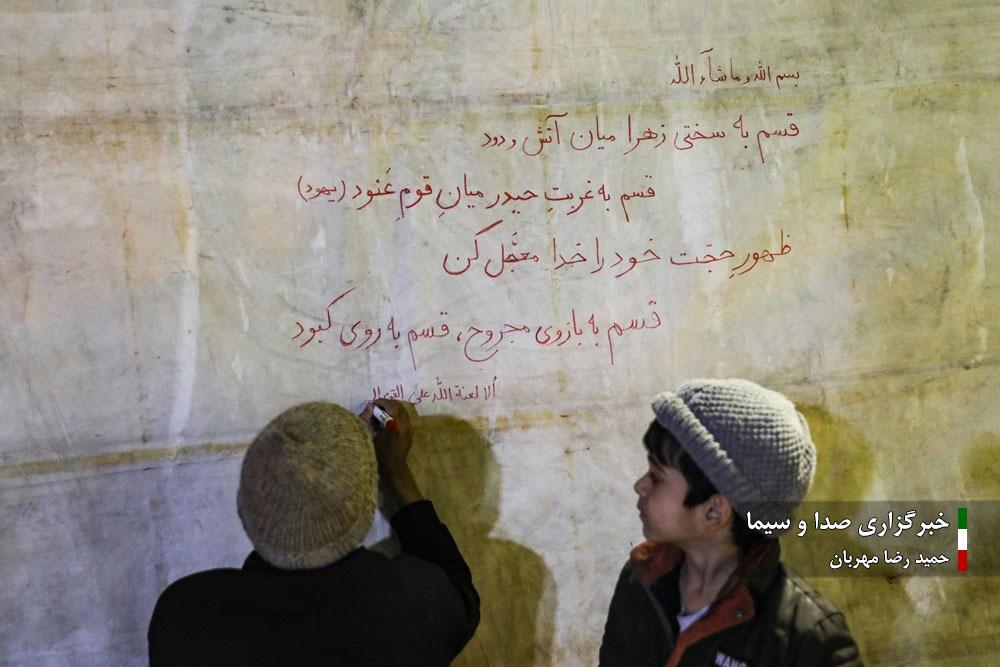 بسم الله و ماشآء الله
قسم به سختی زهرا میان آتش و دود
قسم به غربتِ حیدر میانِ قومِ عَنود (یهود)
ظهورِ حجّت خود را خدا معجَّل کن
قسم به بازوی مجروح، قسم به روی کبود
ألا لعنة الله علی القوم ال
خبرگزاری صدا و سیما
حمید رضا مهربان
WANG